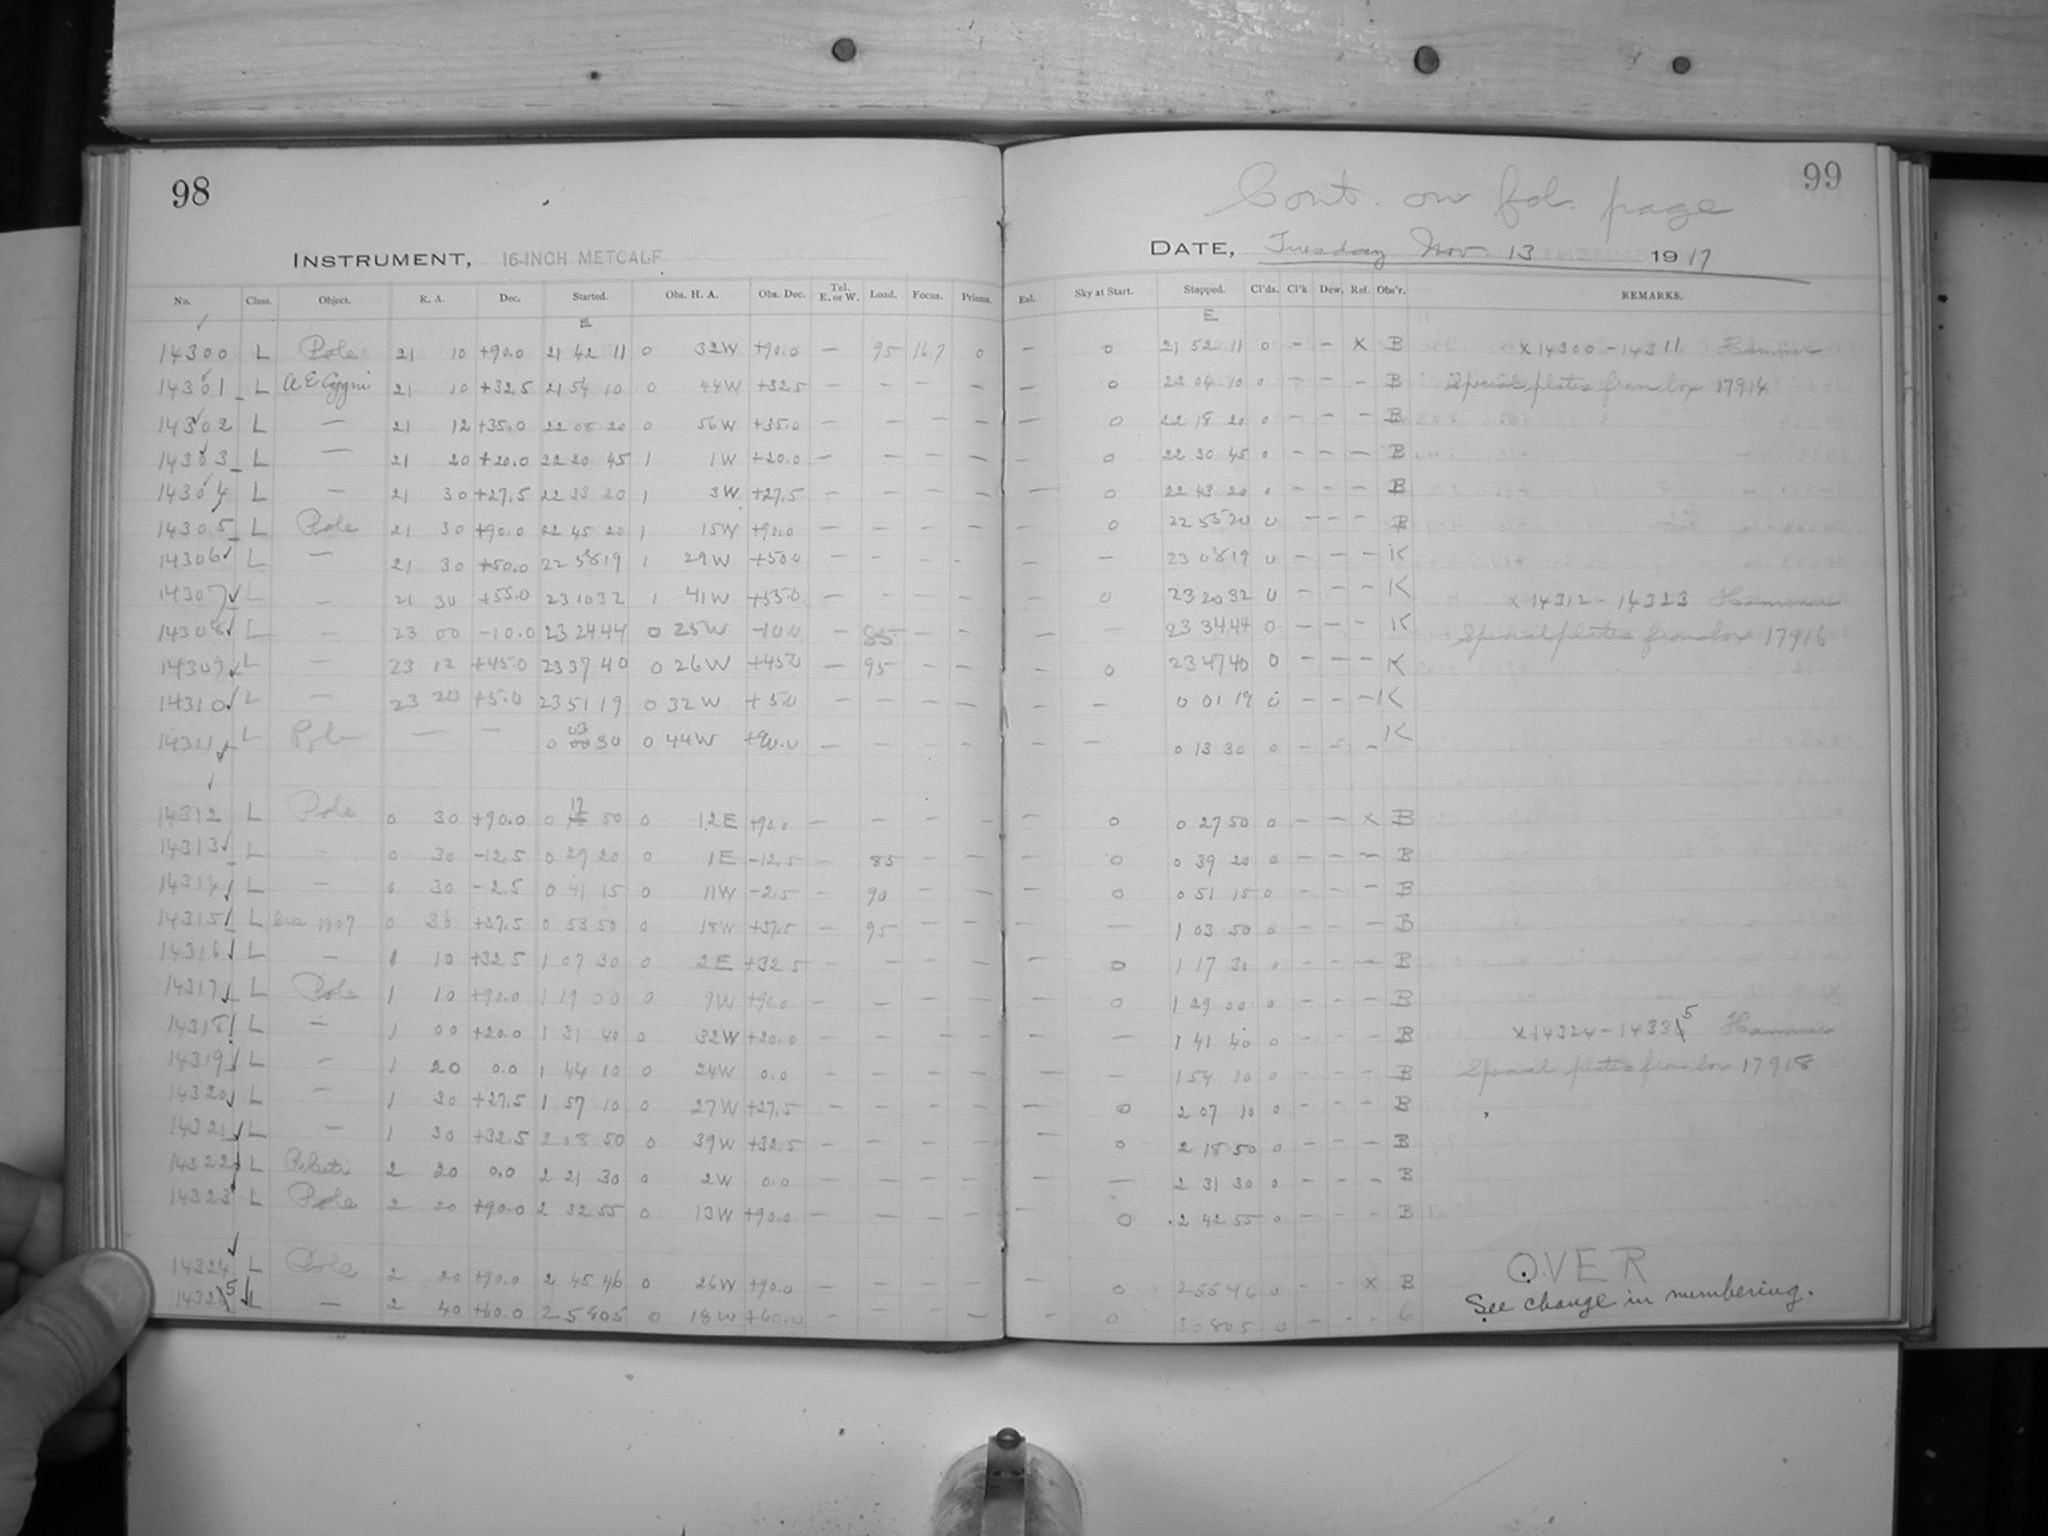 98
INSTRUMENT, 16-INCH METCALF
No. Class. Object. R. A. Dec. Started. Obs. H. A. Obs. Dec. Tel. E. or W. Load. Focus. Prisms.
E
14300 L Pole 21 10 +90.0 21 42 11 0 32W +90.0 — 95 16.7 0
14301 L AE Cygni 21 10 +32.5 21 54 10 0 44W +32.5 — — — —
14302 L — 21 12 +35.0 22 08 20 0 56W +35.0 — — — —
14303 L — 21 20 +20.0 22 20 45 1 1W +20.0 — — — —
14304 L — 21 30 +27.5 22 33 20 1 3W +27.5 — — — —
14305 L Pole 21 30 +90.0 22 45 20 1 15W +90.0 — — — —
14306 L — 21 30 +50.0 22 58 19 1 29W +50.0 — — — —
14307 L — 21 30 +55.0 23 10 32 1 41W +55.0 — — — —
14308 L — 23 00 -10.0 23 24 44 0 25W -10.0 — 85 — —
14309 L — 23 12 +45.0 23 37 40 0 26W +45.0 — 95 — —
14310 L — 23 20 +5.0 23 51 19 0 32W +5.0 — — — —
14311 L Pole — — 0 03 30 0 44W +90.0 — — — —
14312 L Pole 0 30 +90.0 0 17 50 0 12E +90.0 — — — —
14313 L — 0 30 -12.5 0 29 20 0 1E -12.5 — 85 — —
14314 L — 0 30 -2.5 0 41 15 0 11W -2.5 — 90 — —
14315 L 1907 0 36 +37.5 0 53 50 0 18W +37.5 — 95 — —
14316 L — 1 10 +32.5 1 07 30 0 2E +32.5 — — — —
14317 L Pole 1 10 +90.0 1 19 00 0 9W +90.0 — — — —
14318 L — 1 00 +20.0 1 31 40 0 32W +20.0 — — — —
14319 L — 1 20 0.0 1 44 10 0 24W 0.0 — — — —
14320 L — 1 30 +27.5 1 57 10 0 27W +27.5 — — — —
14321 L — 1 30 +32.5 2 08 50 0 39W +32.5 — — — —
14322 L R Ceti 2 20 0.0 2 21 30 0 2W 0.0 — — — —
14323 L Pole 2 20 +90.0 2 32 55 0 13W +90.0 — — — —
14324 L Pole 2 20 +90.0 2 45 46 0 26W +90.0 — — — —
14325 L — 2 40 +60.0 2 58 05 0 18W +60.0 — — — —
99
Cont. on fol. page
DATE, Tuesday Nov 13 1917
Eal. Sky at Start. Stopped. Cl'ds. Cl'k Dew. Ref. Obs'r. REMARKS.
E
— 0 21 52 11 0 — — X B X 14300 - 14311 Hammer
— 0 22 04 10 0 — — — B Special plates from box 17914
— 0 22 18 20 0 — — — B
— 0 22 30 45 0 — — — B
— 0 22 43 20 0 — — — B
— 0 22 55 20 0 — — — B
— — 23 08 19 0 — — — K
— 0 23 20 32 0 — — — K X 14312 - 14323 Hammer
— — 23 34 44 0 — — — K Special plates from box 17916
— 0 23 47 40 0 — — — K
— — 0 01 19 0 — — — K
— — 0 13 30 0 — — — K
— 0 0 27 50 0 — — X B
— 0 0 39 20 0 — — — B
— 0 0 51 15 0 — — — B
— — 1 03 50 0 — — — B
— 0 1 17 30 0 — — — B
— 0 1 29 00 0 — — — B
— — 1 41 40 0 — — — B X 14324 - 14335 Hammer
— — 1 54 10 0 — — — B Special plates from box 17918
— 0 2 07 10 0 — — — B
— 0 2 18 50 0 — — — B
— — 2 31 30 0 — — — B
— 0 2 42 55 0 — — — B
— 0 2 55 46 0 — — X B OVER
— 0 3 08 05 0 — — — See change in numbering.